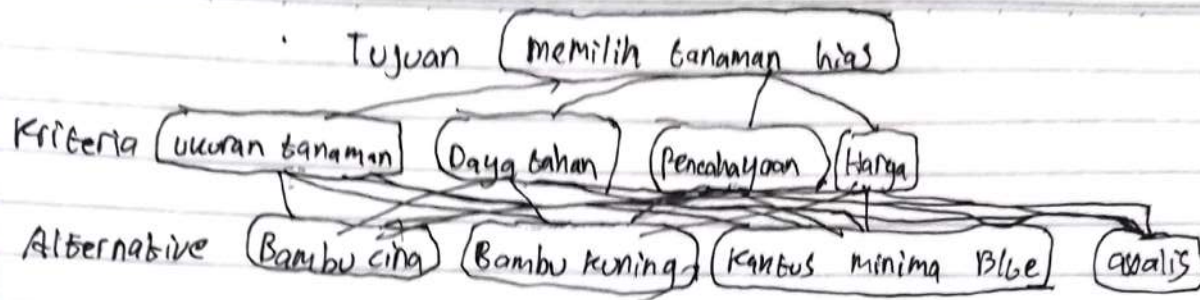 Tujuan memilih tanaman hias
Kriteria ukuran tanaman Daya tahan Pencahayaan Harga
Alternative Bambu cina Bambu kuning Kantus minima Blue